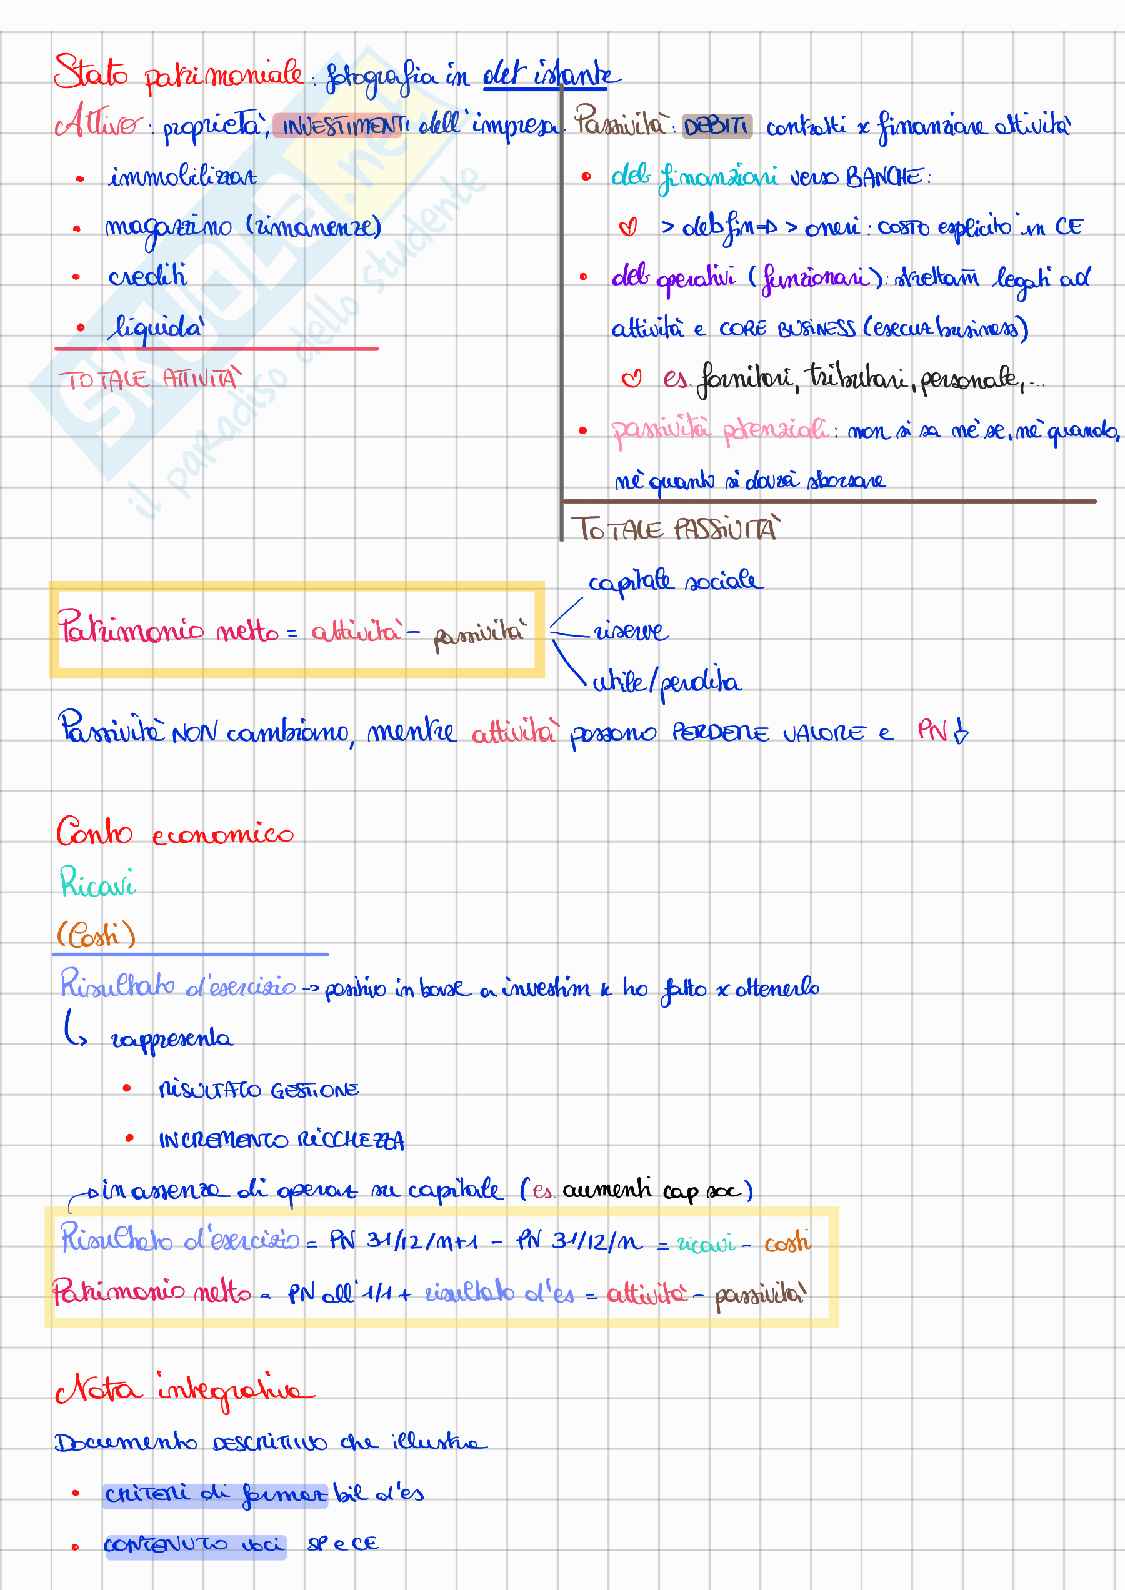 Stato patrimoniale: fotografia in det istante
Attivo: proprietà, INVESTIMENTI dell'impresa
• immobilizzaz
• magazzino (rimanenze)
• crediti
• liquidà
TOTALE ATTIVITÀ
Passività: DEBITI contratti x finanziare attività
• deb finanziari verso BANCHE:
♡ > deb fin → > oneri: COSTO esplicito in CE
• deb operativi (funzionari): strettam legati ad
attività e CORE BUSINESS (esecuz business)
♡ es. fornitori, tributari, personale,...
• passività potenziali: non si sa né se, né quando,
né quanto si dovrà sborsare
TOTALE PASSIVITÀ
Patrimonio netto = attività - passività
capitale sociale
riserve
utile/perdita
Passività NON cambiano, mentre attività possono PERDERE VALORE e PN ↓
Conto economico
Ricavi
(Costi)
Risultato d'esercizio → positivo in base a investim k ho fatto x ottenerlo
↳ rappresenta
• RISULTATO GESTIONE
• INCREMENTO RICCHEZZA
→ in assenza di operaz su capitale (es. aumenti cap soc)
Risultato d'esercizio = PN 31/12/n+1 - PN 31/12/n = ricavi - costi
Patrimonio netto = PN all'1/1 + risultato d'es = attività - passività
Nota integrativa
Documento DESCRITTIVO che illustra
• CRITERI di formaz bil d'es
• CONTENUTO voci SP e CE
SKUOLA.net
il paradiso dello studente